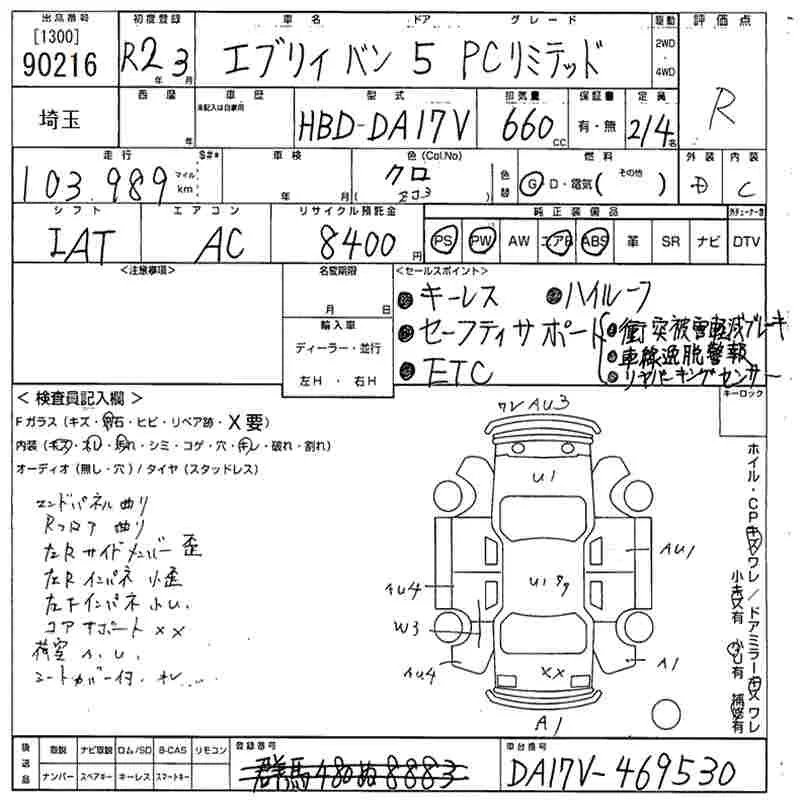 出品番号 初度登録 車名 ドア グレード 駆動 評価点
[1300]
90216 R2 3 エブリィ バン 5 PCリミテッド 2WD・4WD R
年 月
西暦 車歴 型式 排気量 保証書 定員
未記入は自家用
埼玉 年 HBD-DA17V 660 cc 有・無 2/4 名
走行 S#* 車検 色(Col.No) 燃料 外装 内装
103,989 マイル km 年 月 クロ ( ZJ3 ) 色替 G・D・電気( その他 ) D C
シフト エアコン リサイクル預託金 純正装備品
IAT AC 8400 円 PS PW AW エアB ABS 革 SR ナビ DTV
<注意事項> 名変期限 <セールスポイント>
月 日
●キーレス ●ハイルーフ
輸入車
●セーフティサポート ●衝突被害軽減ブレーキ
ディーラー・並行 ●車線逸脱警報
●ETC ●リヤパーキングセンサー
左H ・ 右H
< 検査員記入欄 > キーロック
Fガラス(キズ・飛石・ヒビ・リペア跡・X要)
内装(キズ・ヨレ・汚れ・シミ・コゲ・穴・キレ・破れ・割れ)
オーディオ(無し・穴)/タイヤ(スタッドレス)
ワレAU3
U1
エンドパネル曲り
Rフロア 曲り
左Rサイドメンバー 歪
AU1
左Rインパネ 小歪
AU4
左Fインパネ 小U.
コアサポート XX
W3
荷室 A.U.
AU4
XX
A1
A1
ホイル・CPキズワレ/ドアミラーキズワレ
後送品 取説 ナビ取説 ロム/SD B-CAS リモコン 登録番号 車台番号
ナンバー スペアキー キーレス スマートキー 群馬480ぬ8883 DA17V-469530